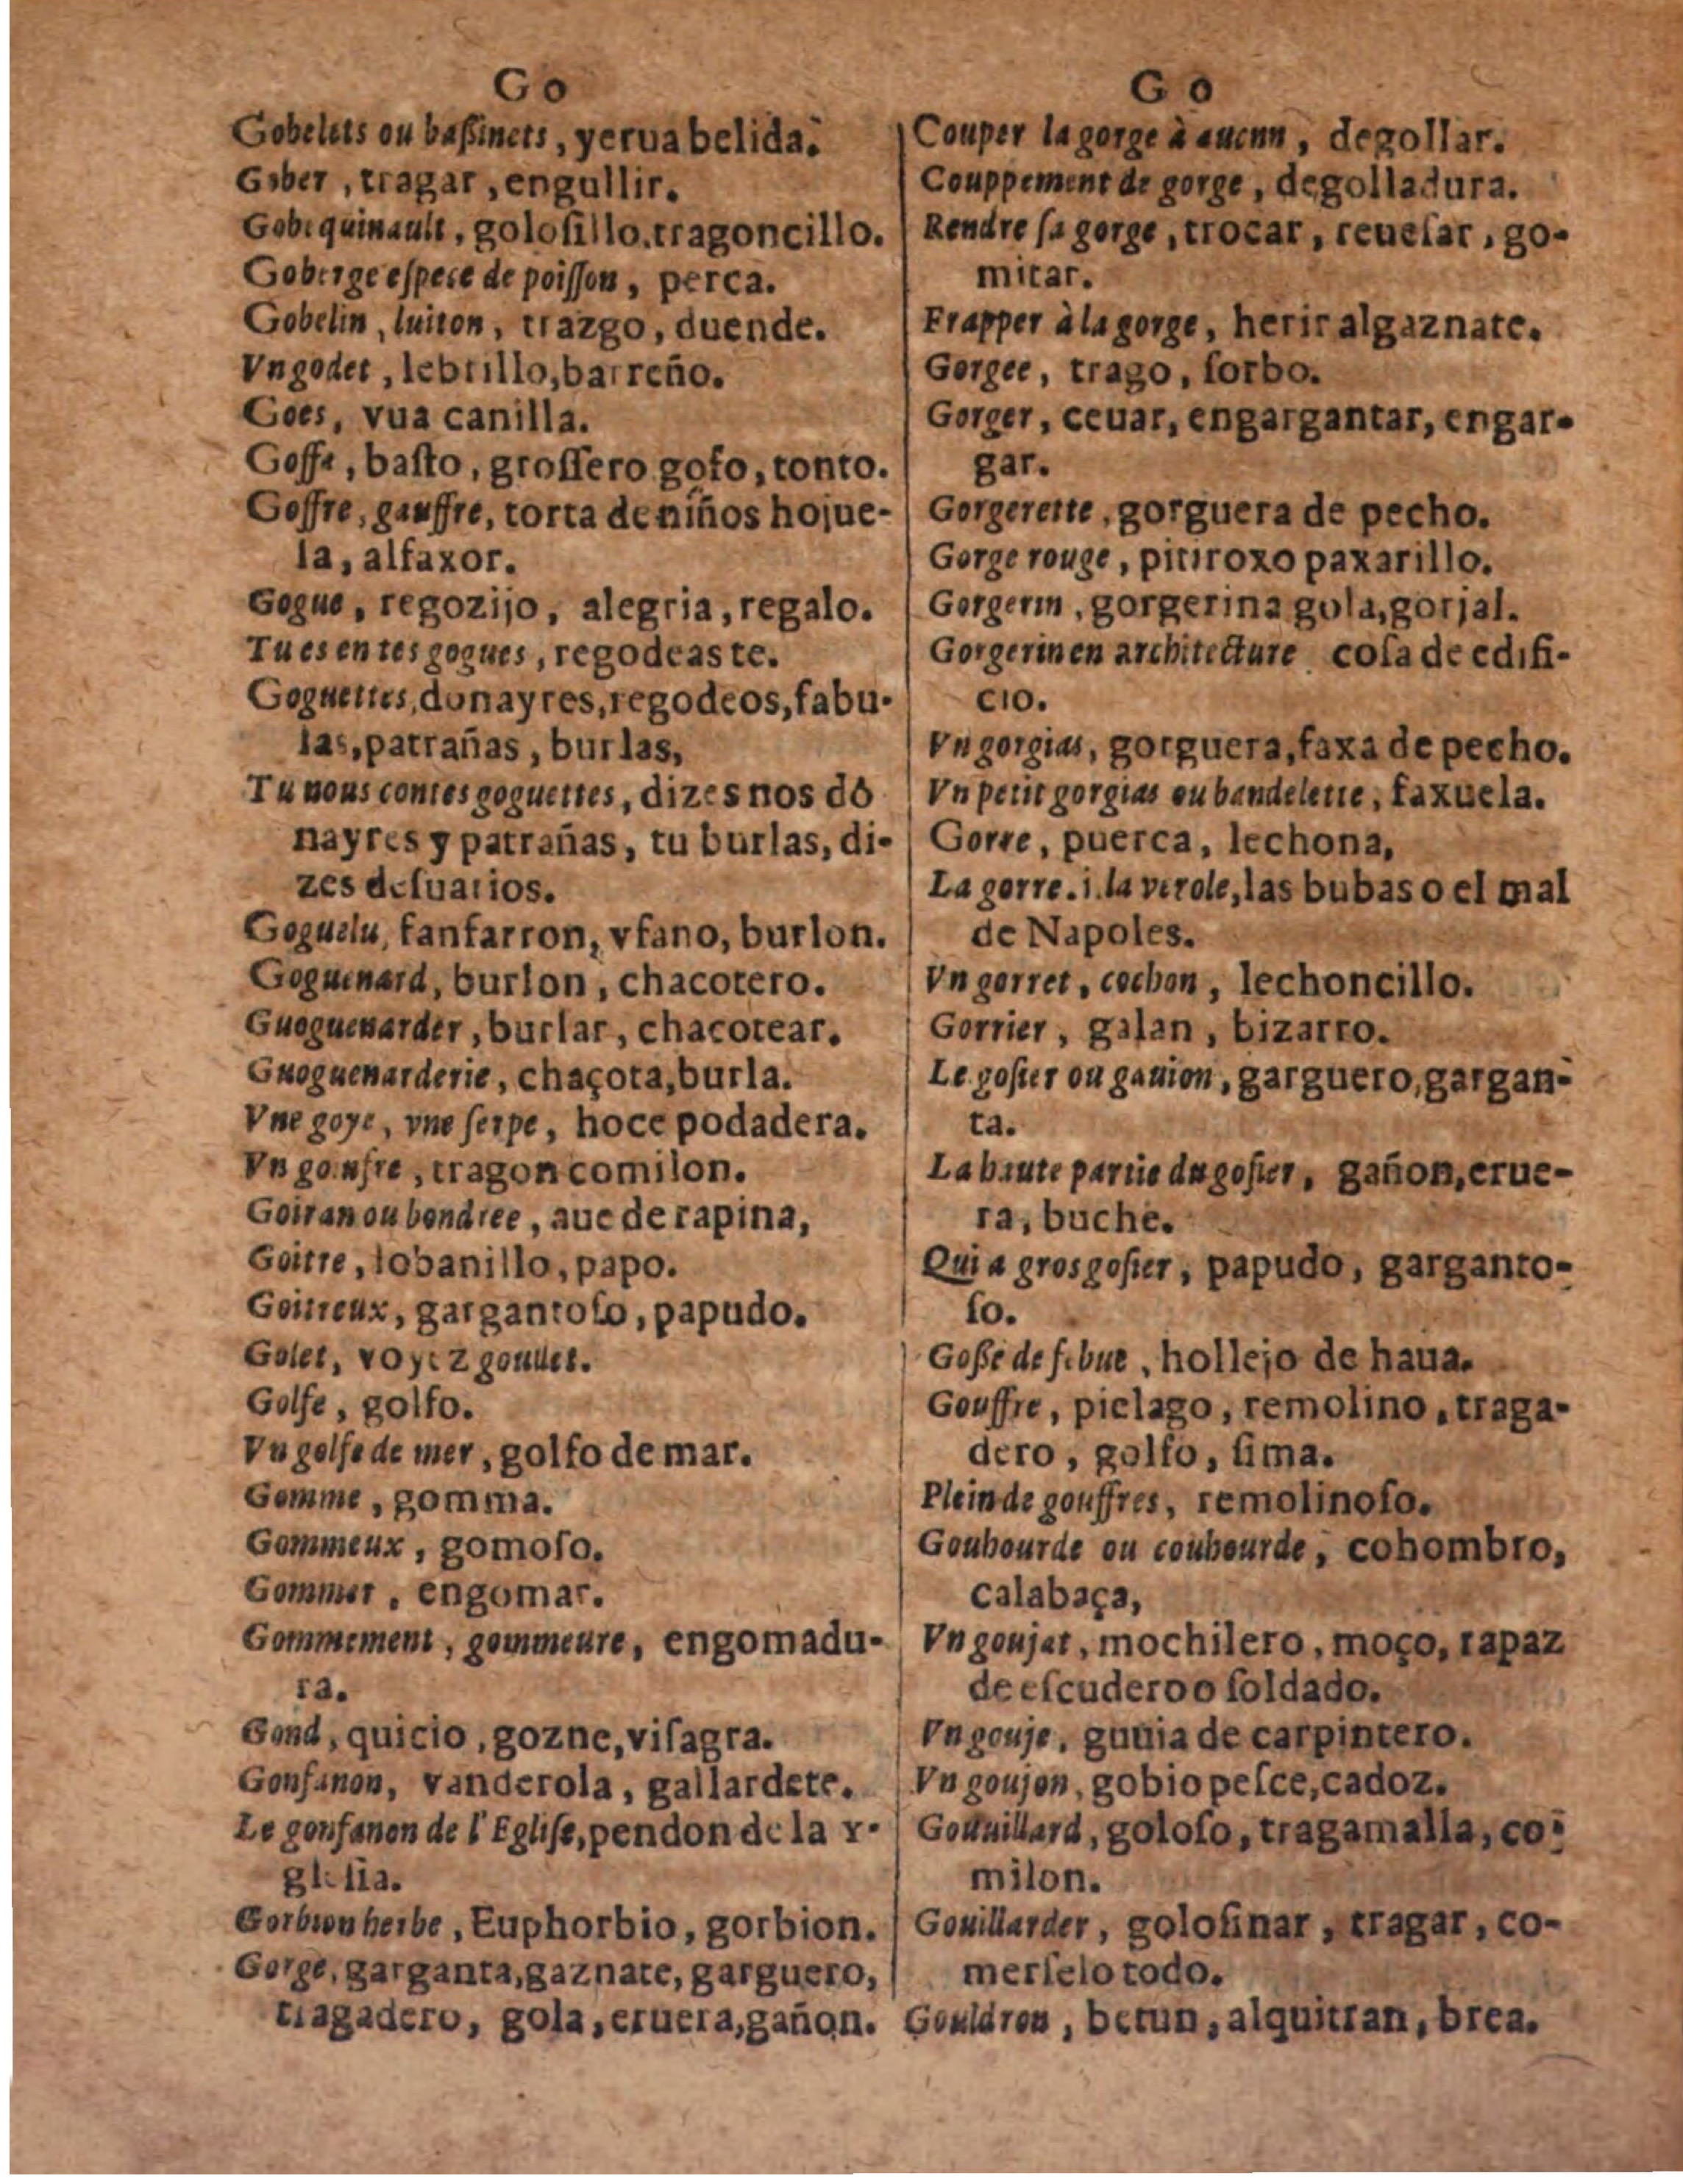 Go
Gobelets ou baßinets, yerua belida.
Gober, tragar, engullir.
Gobequinault, golosillo, tragoncillo.
Goberge eſpece de poiſſon, perca.
Gobelin, luiton, trazgo, duende.
Vn godet, lebrillo, barreño.
Goes, vua canilla.
Goffe, baſto, groſſero gofo, tonto.
Goffre, gauffre, torta de niños hojue-
la, alfaxor.
Gogue, regozijo, alegria, regalo.
Tu es en tes gogues, regodeas te.
Goguettes, donayres, regodeos, fabu-
las, patrañas, burlas,
Tu nous contes goguettes, dizes nos dó
nayres y patrañas, tu burlas, di-
zes deſuarios.
Goguelu, fanfarron, vfano, burlon.
Goguenard, burlon, chacotero.
Guoguenarder, burlar, chacotear.
Guoguenarderie, chaçota, burla.
Vne goye, vne ſerpe, hoce podadera.
Vn goufre, tragon comilon.
Goiran ou bondree, aue de rapina,
Goitre, lobanillo, papo.
Goitreux, gargantoſo, papudo.
Golet, voyez goullet.
Golfe, golfo.
Vn golfe de mer, golfo de mar.
Gomme, gomma.
Gommeux, gomoſo.
Gommer, engomar.
Gommement, gommeure, engomadu-
ra.
Gond, quicio, gozne, viſagra.
Gonfanon, vanderola, gallardete.
Le gonfanon de l'Egliſe, pendon de la Y-
gleſia.
Gorbion herbe, Euphorbio, gorbion.
Gorge, garganta, gaznate, garguero,
tragadero, gola, eruera, gañon.
Go
Couper la gorge à aucun, degollar.
Couppement de gorge, degolladura.
Rendre ſa gorge, trocar, reueſar, go-
mitar.
Frapper à la gorge, herir al gaznate.
Gorgee, trago, ſorbo.
Gorger, ceuar, engargantar, engar-
gar.
Gorgerette, gorguera de pecho.
Gorge rouge, pitiroxo paxarillo.
Gorgerin, gorgerina gola, gorjal.
Gorgerin en architecture coſa de edifi-
cio.
Vn gorgias, gorguera, faxa de pecho.
Vn petit gorgias ou bandelette, faxuela.
Gorre, puerca, lechona,
La gorre. i. la verole, las bubas o el mal
de Napoles.
Vn gorret, cochon, lechoncillo.
Gorrier, galan, bizarro.
Le goſier ou gauion, garguero, gargan-
ta.
La haute partie du goſier, gañon, erue-
ra, buche.
Qui a gros goſier, papudo, garganto-
ſo.
Goße de febue, hollejo de haua.
Gouffre, pielago, remolino, traga-
dero, golfo, ſima.
Plein de gouffres, remolinoſo.
Gouhourde ou couhourde, cohombro,
calabaça,
Vn goujat, mochilero, moço, rapaz
de eſcudero o ſoldado.
Vn gouje, guuia de carpintero.
Vn goujon, gobio peſce, cadoz.
Gouillard, goloſo, tragamalla, co-
milon.
Gouillarder, goloſinar, tragar, co-
merſelo todo.
Gouldron, betun, alquitran, brea.